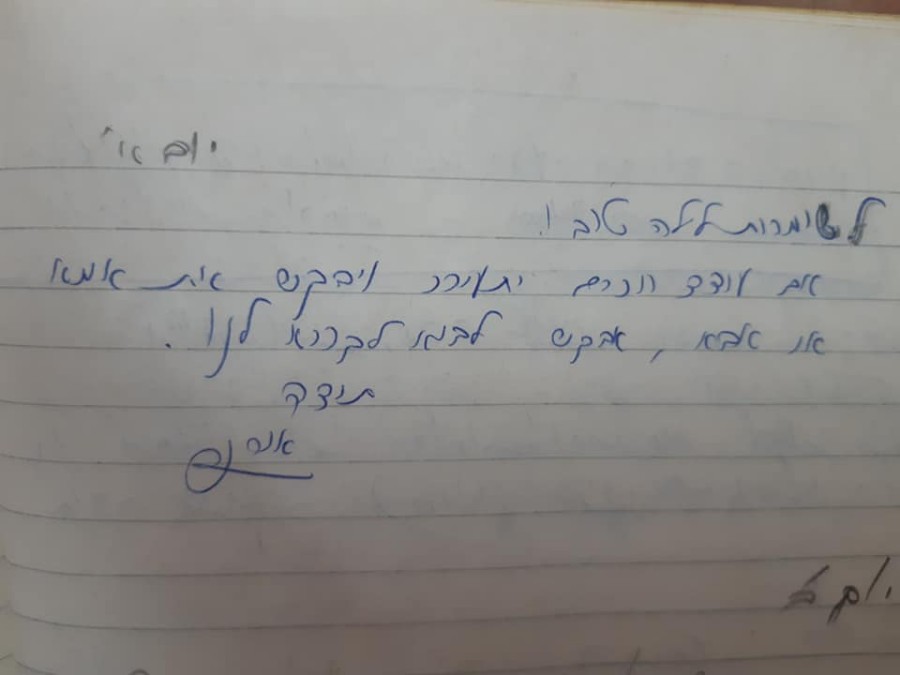 יום א'
לשומרות לילה טוב!
אם עודד רוכים יתעורר ויבקש את אמא
או אבא, אבקש לבוא לקרוא לנו.
תודה
יום ב'